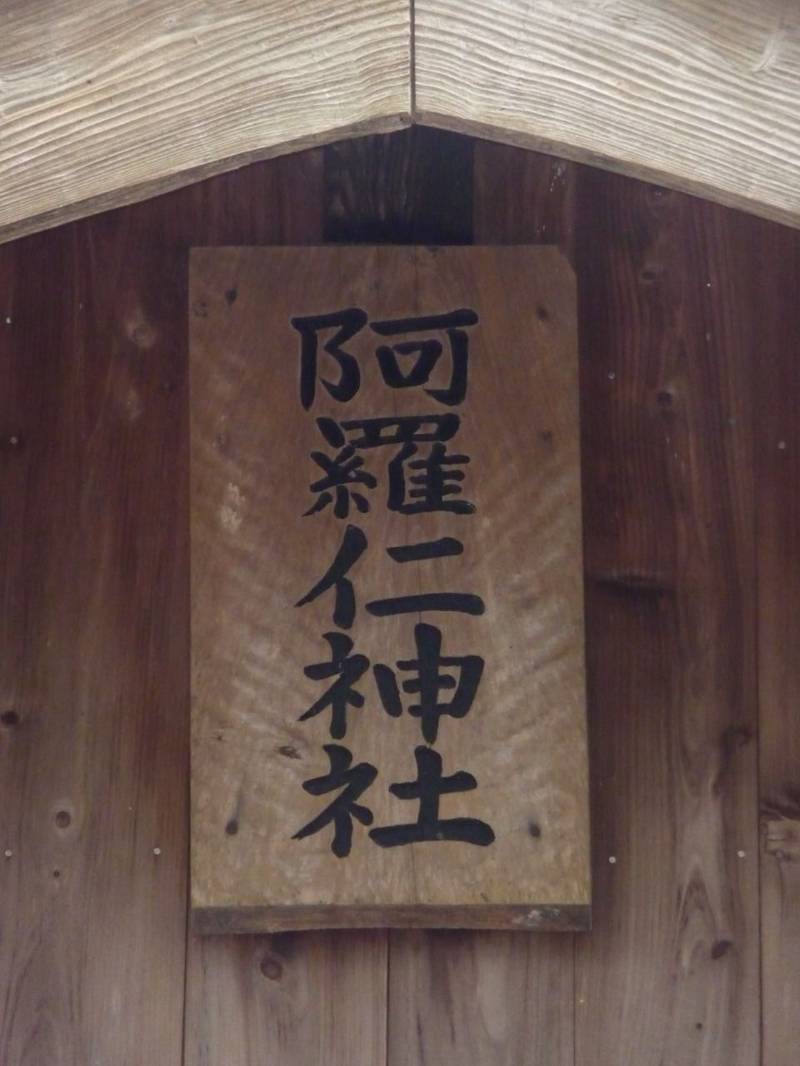 阿羅仁神社